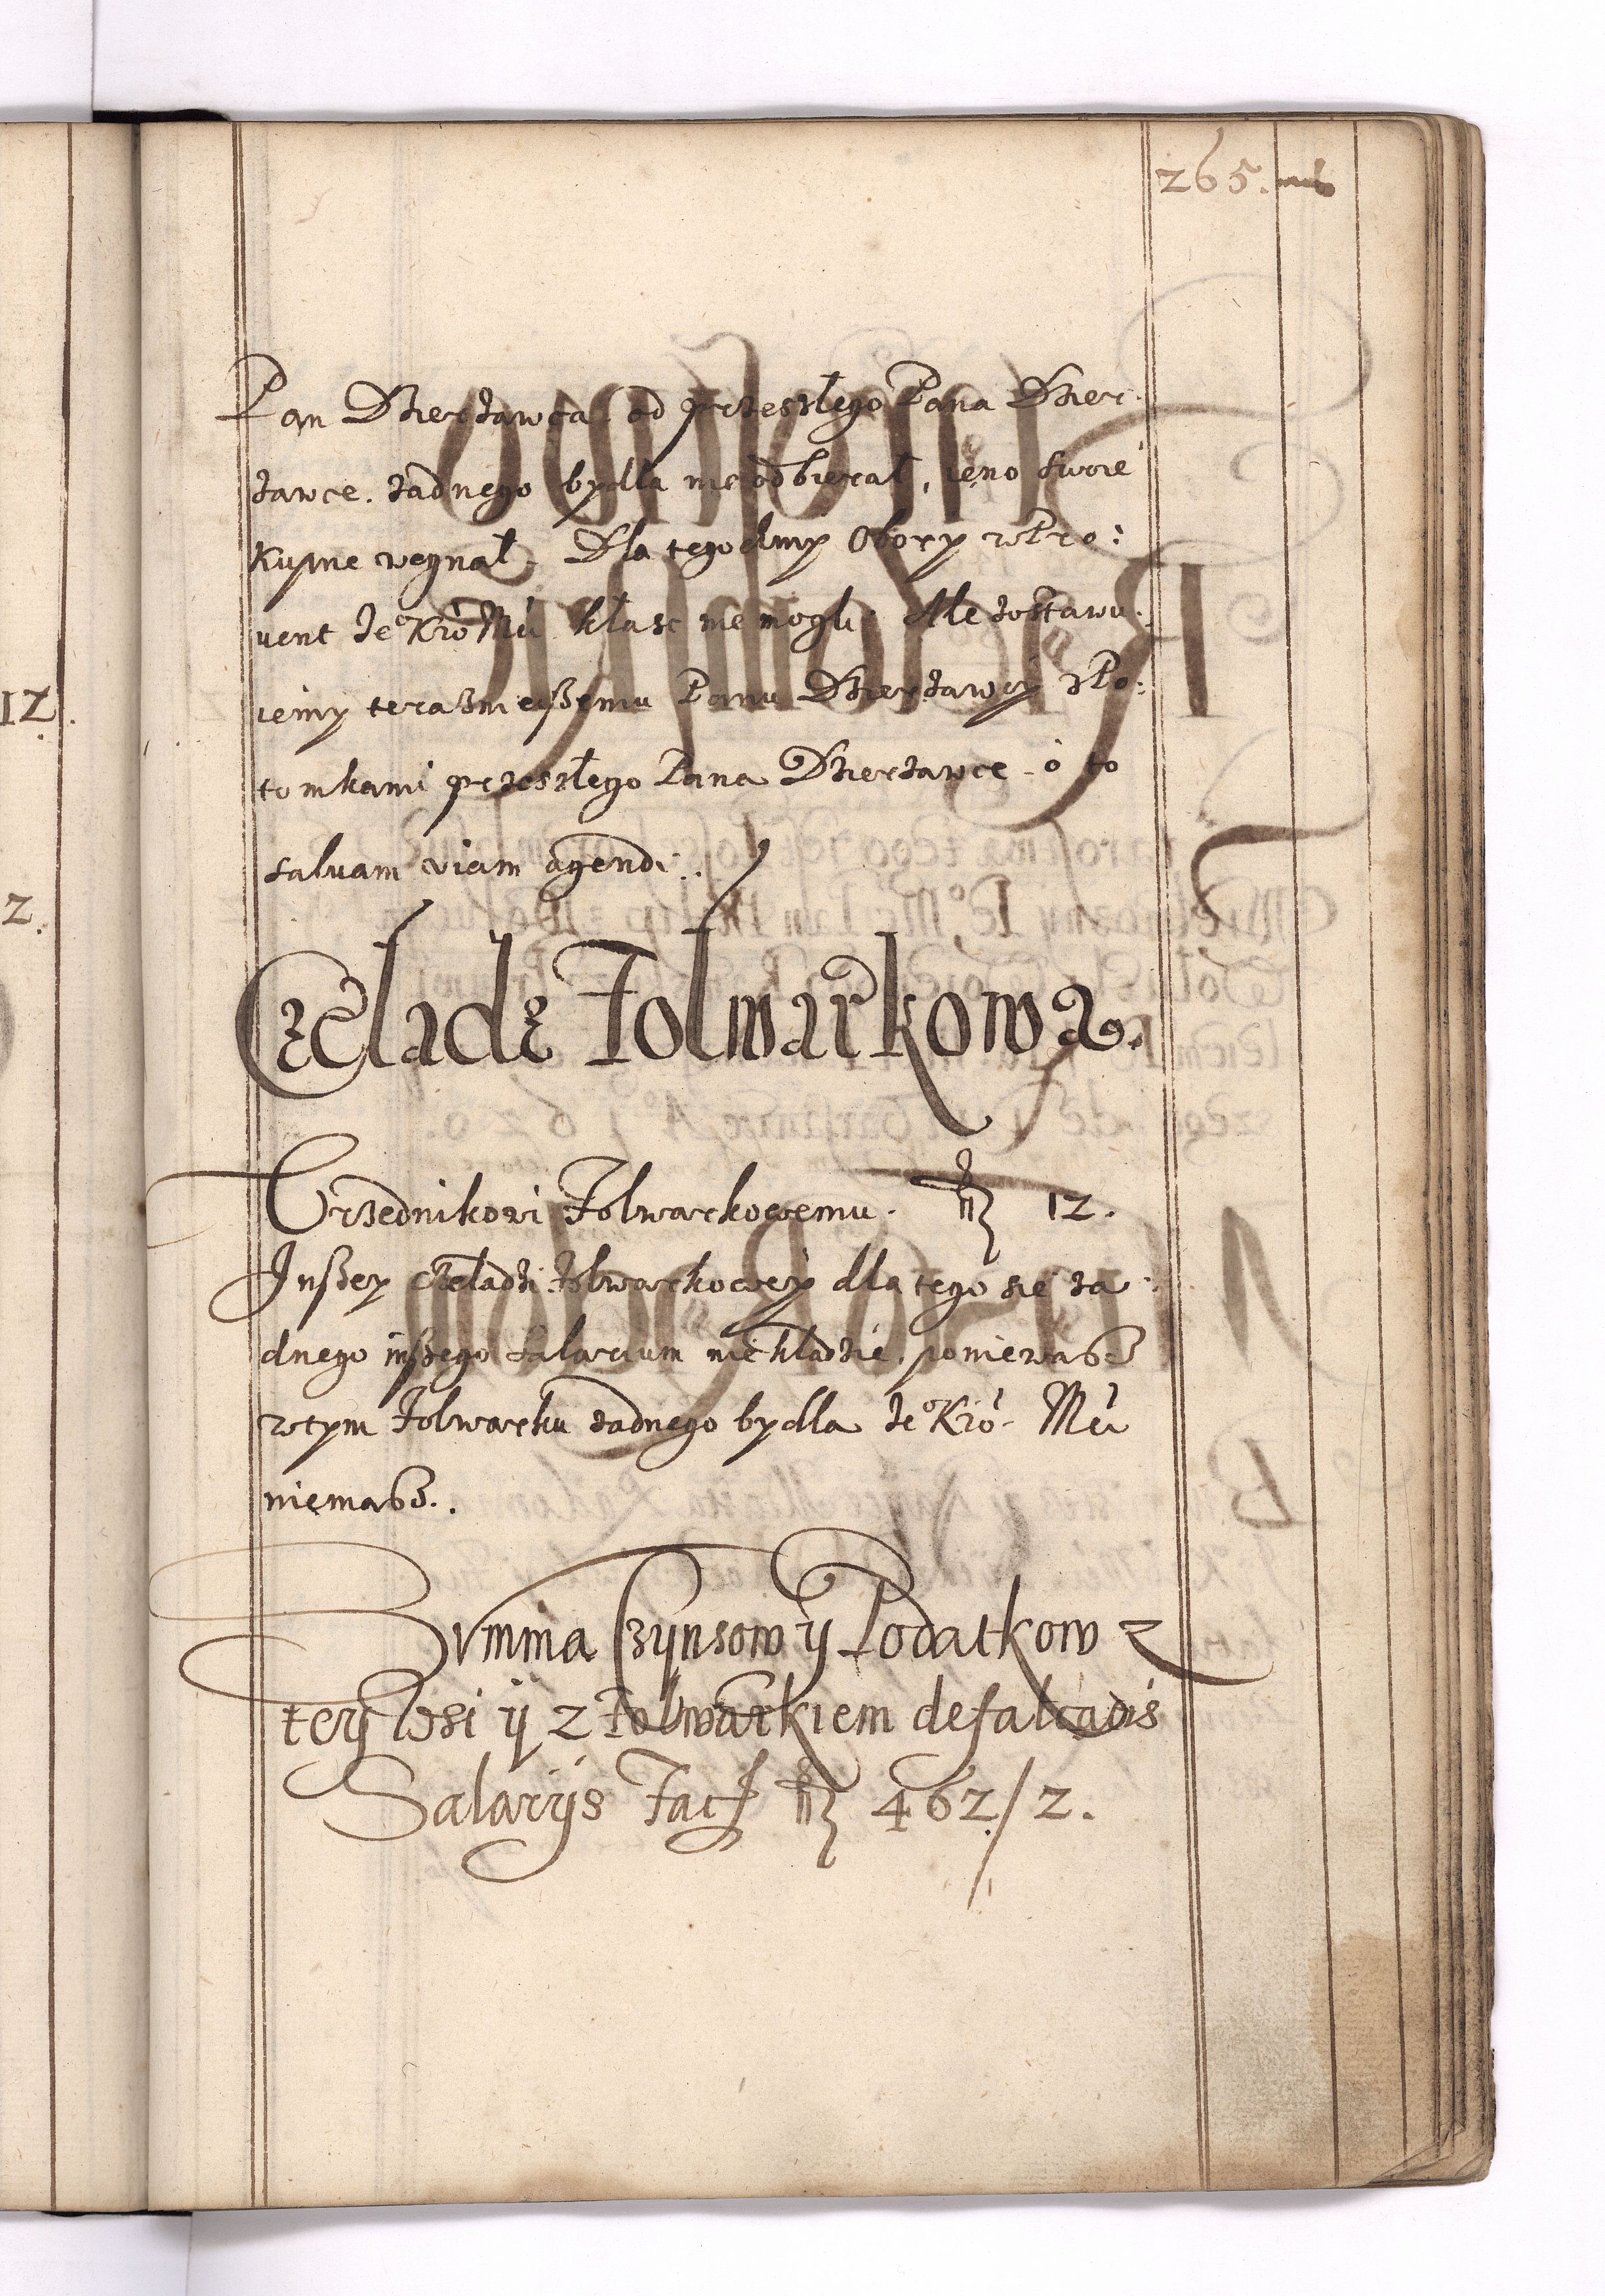 265.
Pan Dzierzawca od przeszłego Pana Dzier-
zawce. zadnego bydla nie odbierał, ieno swoie
kupne wegnał. Dla tegosmy Obory w Pro:
vent Je° Kro Mći klasc nie mogli. Ale zostawu:
iemy terasznieyszemu Panu Dzierzawcy z Po:
tomkami przeszłego Pana Dzierzawce o to
salvam viam agendi.
Czeladz Folwarkowa.
Vrzednikowi Folwarkowemu. 12.
Inszey czeladzi folwarkowey dla tego sie za:
dnego inszego salarium nie kladzie, poniewasz
w tym folwarku zadnego bydla Je° Kro Mći
niemasz.
Summa Czynsow ÿ Podatkow z
tey Wsi ÿ z Folwarkiem defalcatis
Salarijs Facit 462/2.
12.
2.